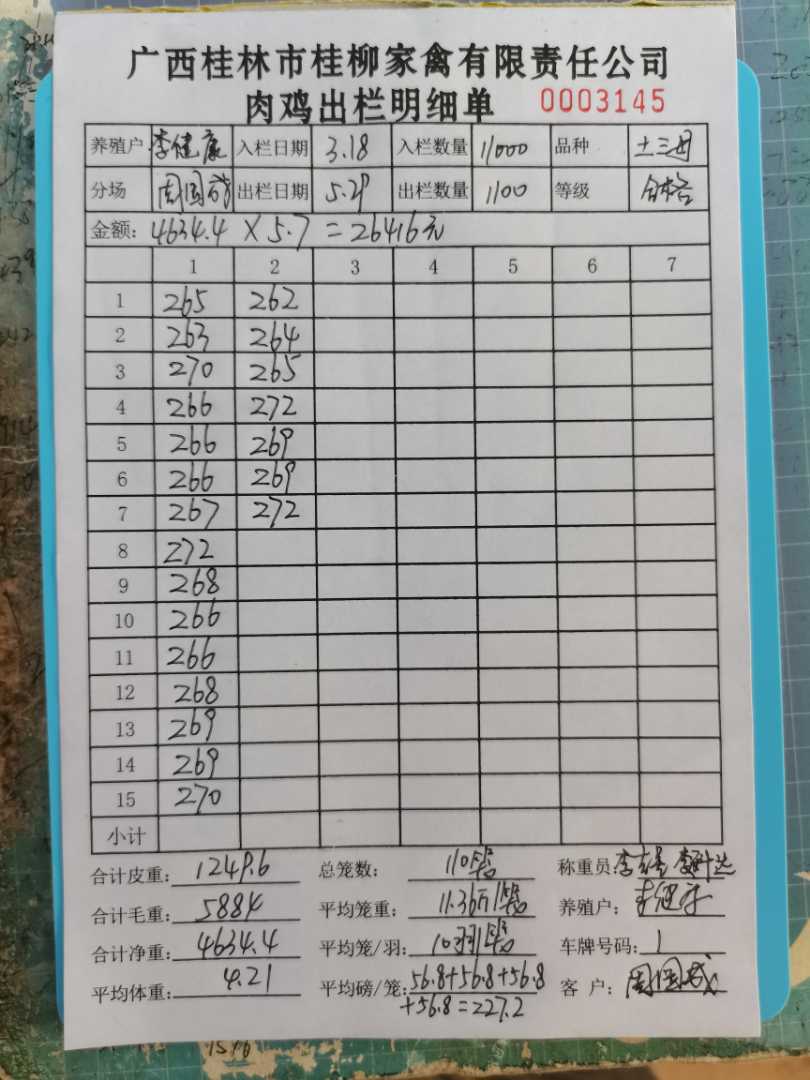 广西桂林市桂柳家禽有限责任公司
肉鸡出栏明细单 0003145
养殖户 李健康 入栏日期 3.18 入栏数量 11000 品种 土三母
分场 周国成 出栏日期 5.29 出栏数量 1100 等级 合格
金额: 4634.4 × 5.7 = 26416元
1 2 3 4 5 6 7
1 265 262
2 263 264
3 270 265
4 266 272
5 266 269
6 266 269
7 267 272
8 272
9 268
10 266
11 266
12 268
13 269
14 269
15 270
小计
合计皮重: 1249.6 总笼数: 110笼 称重员:
合计毛重: 5884 平均笼重: 11.36斤/笼 养殖户: 李健康
合计净重: 4634.4 平均笼/羽: 10羽/笼 车牌号码: 1
平均体重: 4.21 平均磅/笼: 56.8+56.8+56.8 客户: 周国成
+56.8=227.2